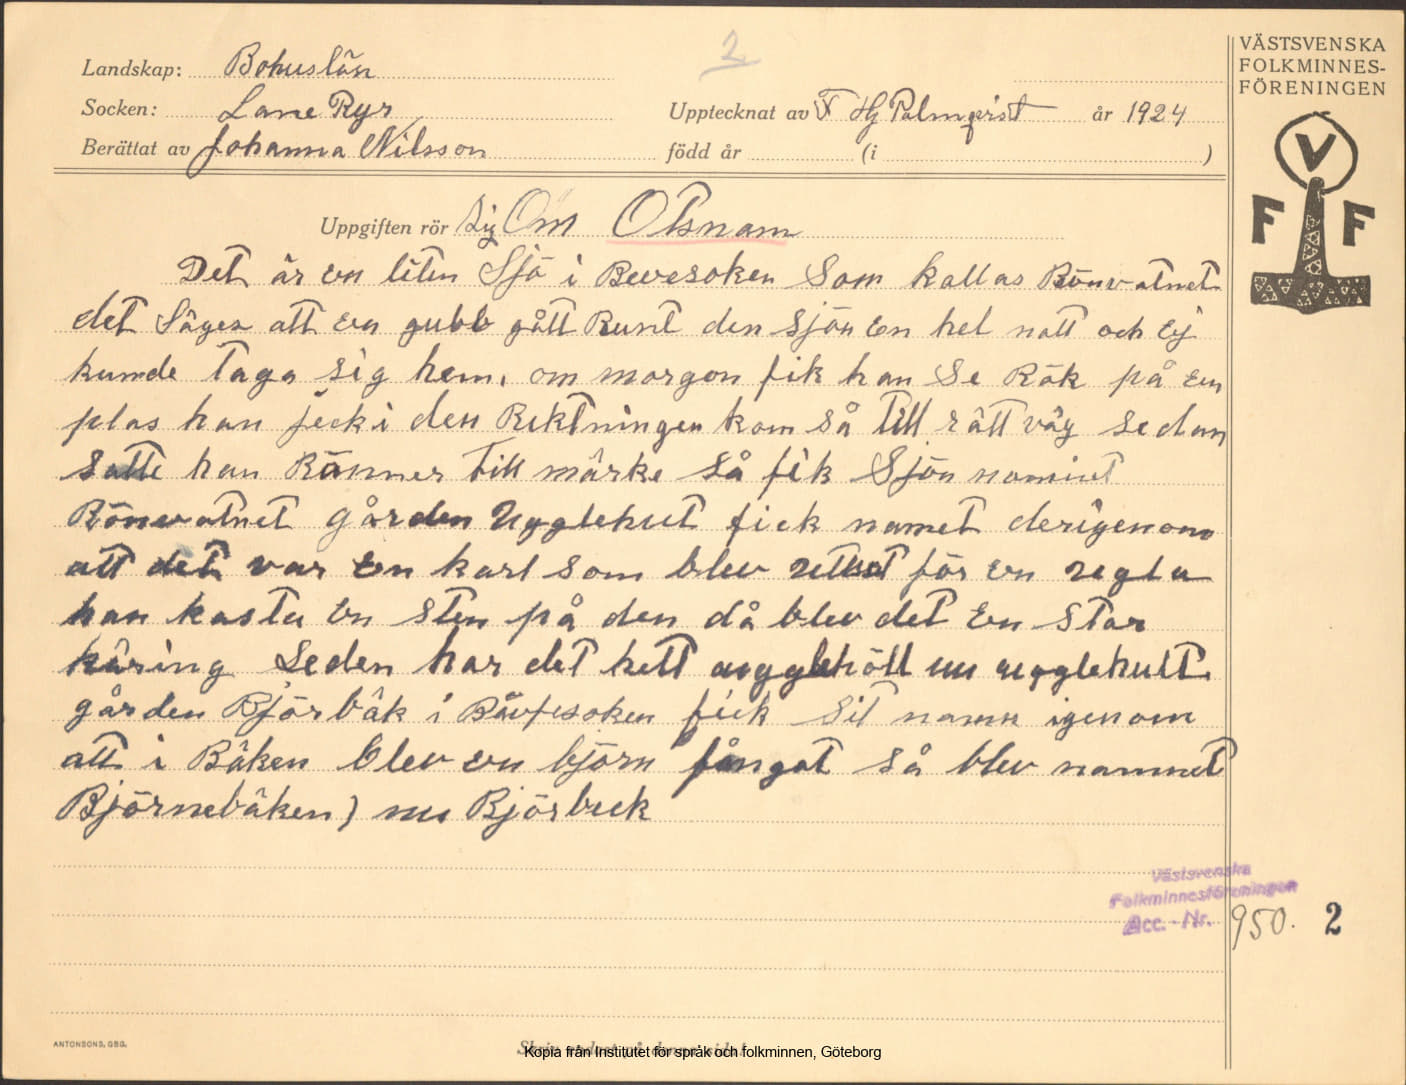 2
VÄSTSVENSKA
FOLKMINNES-
FÖRENINGEN
V
F F
Landskap: Bohuslän
Socken: Lane Ryr
Upptecknat av F Hj Palmqvist år 1924
Berättat av Johanna Nilsson född år (i )
Uppgiften rör Om Otsnam
Det är en liten Sjö i Bevesoken Som kallas Rönvatnet
det Säges att en gubb gått Runt den Sjön En hel natt och Ej
kunde Taga Sig hem, om morgon fik han Se Rök på en
plas han jeck i den Riktningen kom så Till rätt väg sedan
Satte han Rönner Till märke så fik Sjön namnet
Rönvatnet gården Ugglehult fick namet derigenom
att det var En karl som blev för en ugla
han kasta En Sten på den då blev det En Star
käring Seden har det hett nu ugglehult.
gården Björbäk i Bävfesoken fick Sit namn igenom
att i Bäken blev en björn fångat så blev namnet
Björnebäken) nu Björbeck
Västsvenska
Folkminnesföreningen
Acc.-Nr. 950. 2
ANTONSONS, GBG.
Skriv endast på denna sida!
Kopia från Institutet för språk och folkminnen, Göteborg